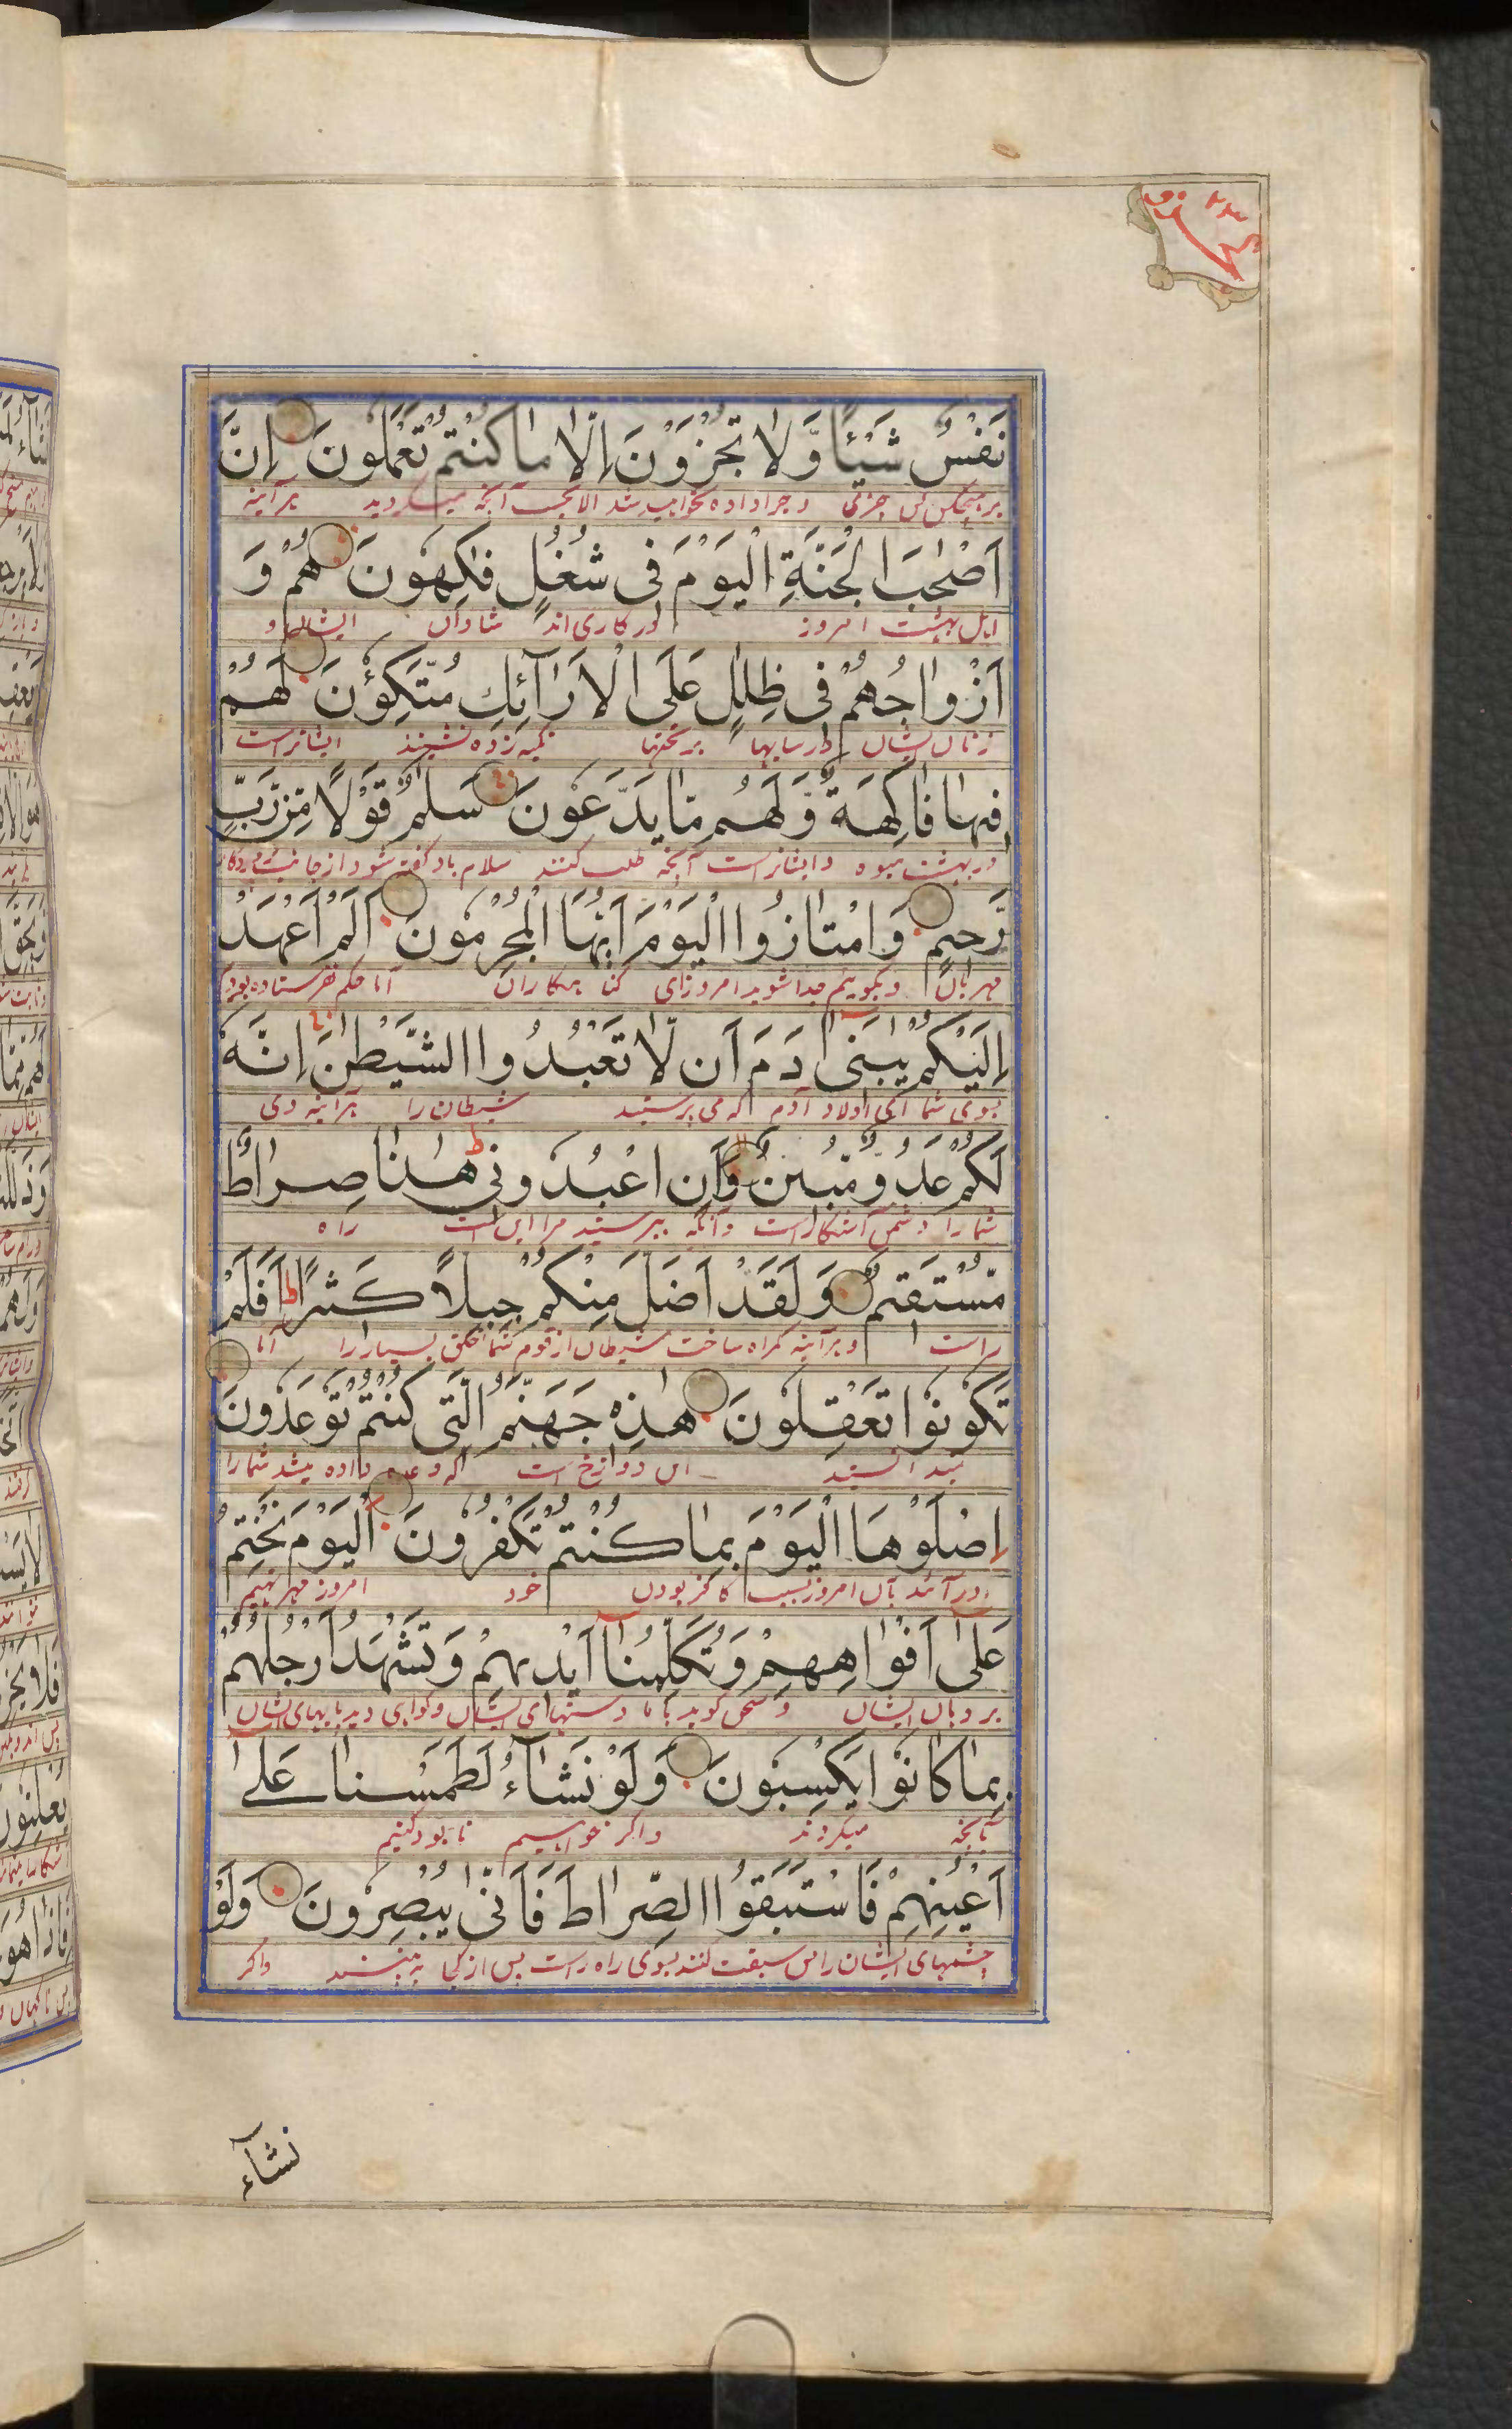 نَفْسٌ شَيْئًا وَّلَا تُجْزَوْنَ اِلَّا مَا كُنْتُمْ تَعْمَلُونَ اِنَّ
بر هیچکس چیزی و جزا داده نخواهید شد الا بحسب آنچه میکردید هر آینه
اَصْحٰبَ الْجَنَّةِ الْيَوْمَ فِى شُغُلٍ فٰكِهُونَ هُمْ وَ
اهل بهشت امروز در کاری اند شادان ایشان و
اَزْوَاجُهُمْ فِى ظِلٰلٍ عَلَى الْاَرَآئِكِ مُتَّكِؤُنَ لَهُمْ
زنان ایشان در سایها بر تختها تکیه زده نشینند ایشانراست
فِيهَا فَاكِهَةٌ وَّلَهُمْ مَّا يَدَّعُونَ سَلٰمٌ قَوْلًا مِّنْ رَّبٍّ
در بهشت میوه و ایشانراست آنچه طلب کنند سلام باد گفته شود از جانب
رَّحِيمٍ وَامْتَازُوا الْيَوْمَ اَيُّهَا الْمُجْرِمُونَ اَلَمْ اَعْهَدْ
مهربان و بگوییم جدا شوید امروز ای گناهکاران آیا حکم نفرستاده بودم
اِلَيْكُمْ يٰبَنِىٓ اٰدَمَ اَن لَّا تَعْبُدُوا الشَّيْطٰنَ اِنَّهٗ
بسوی شما ای اولاد آدم که می پرستید شیطان را هر آینه وی
لَكُمْ عَدُوٌّ مُّبِينٌ وَّاَنِ اعْبُدُونِى هٰذَا صِرَاطٌ
شما را دشمن آشکار است و آنکه بپرستید مرا این است راه
مُّسْتَقِيمٌ وَلَقَدْ اَضَلَّ مِنْكُمْ جِبِلًّا كَثِيرًا ط اَفَلَمْ
راست و هر آینه گمراه ساخت شیطان از قوم شما خلق بسیار را آیا
تَكُونُوا تَعْقِلُونَ هٰذِهٖ جَهَنَّمُ الَّتِى كُنْتُمْ تُوعَدُونَ
این دوازخ است که وعده داده میشد شما را
اِصْلَوْهَا الْيَوْمَ بِمَا كُنْتُمْ تَكْفُرُونَ اَلْيَوْمَ نَخْتِمُ
در آئید بآن امروز بسبب کافر بودن خود امروز مهر نهیم
عَلٰىٓ اَفْوَاهِهِمْ وَتُكَلِّمُنَآ اَيْدِيهِمْ وَتَشْهَدُ اَرْجُلُهُمْ
بر دهان ایشان و سخن گوید با ما دستهای ایشان و گواهی دهد پایهای ایشان
بِمَا كَانُوا يَكْسِبُونَ وَلَوْ نَشَآءُ لَطَمَسْنَا عَلٰىٓ
بآنچه میکردند و اگر خواهیم نابود کنیم
اَعْيُنِهِمْ فَاسْتَبَقُوا الصِّرَاطَ فَاَنّٰى يُبْصِرُونَ وَلَوْ
چشمهای ایشان را پس سبقت کنند بسوی راه راست پس از کجا به بینند و اگر
نشآء